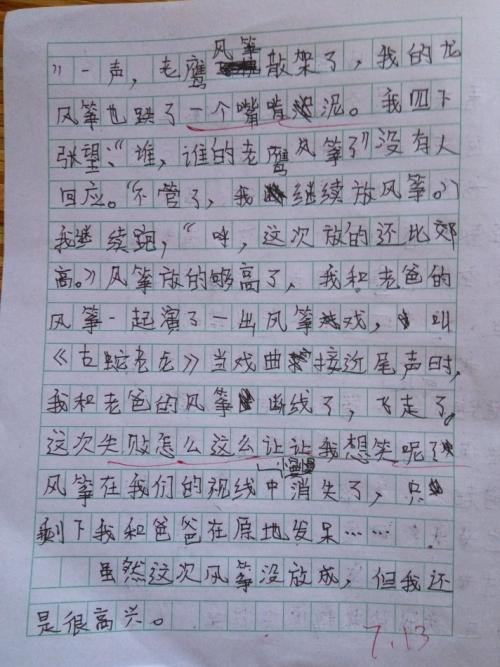 》一声，老鹰风筝散架了，我的龙
风筝也跌了一个嘴啃泥。我四下
张望："谁，谁的老鹰风筝了"没有人
回应。"不管了，我继续放风筝。"
我继续跑，"呀，这次放的还比郊
高。》风筝放的够高了，我和老爸的
风筝一起演了一出风筝戏，叫
《古蛇老龙》当戏曲接近尾声时，
我和老爸的风筝断线了，飞走了。
这次失败怎么这么让让我想笑呢了
风筝在我们的视线中消失了，只
剩下我和爸爸在原地发呆……
虽然这次风筝没放成，但我还
是很高兴。
7.13